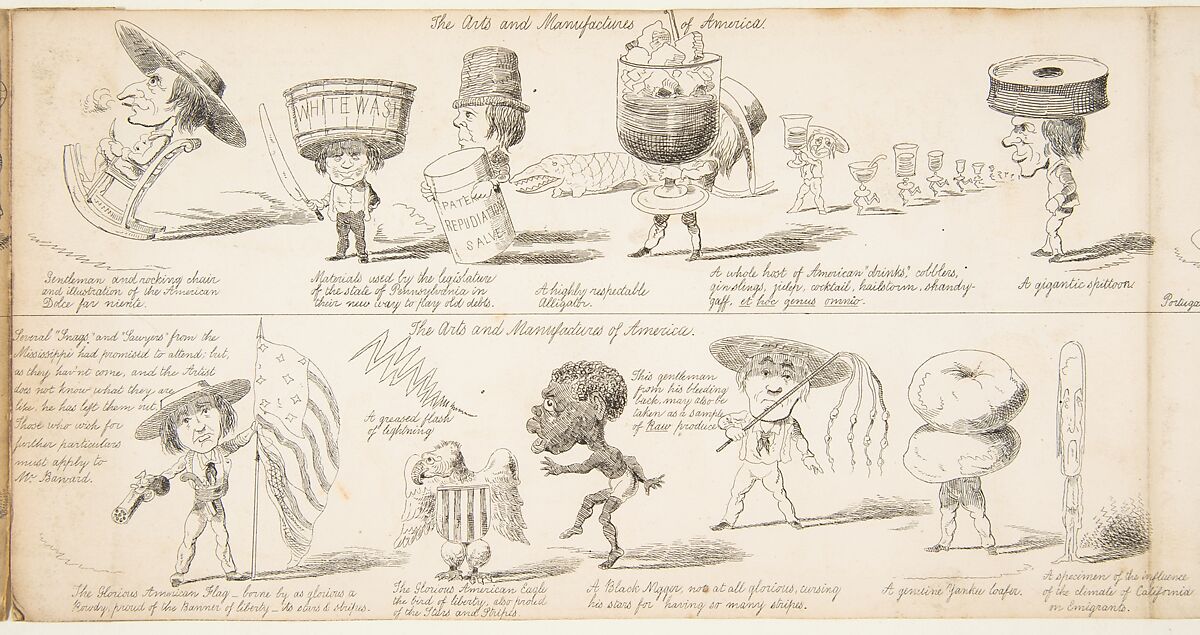 The Arts and Manufactures of America.
WHITEWASH
PATENT
REPUDIATION
SALVE
Gentleman and rocking chair
and illustration of the American
Dolce far niente.
Materials used by the legislature
of the state of Pennsylvania in
their new way to pay old debts.
A highly respectable
Alligator.
A whole host of American "drinks," cobblers,
ginslings, julep, cocktail, hailstorm, shandy-
gaff, et hoc genus omnio.
A gigantic spittoon
Portuga
The Arts and Manufactures of America.
Several "Snags" and "Sawyers" from the
Mississippi had promised to attend; but,
as they hav'nt come, and the Artist
does not know what they are
like, he has left them out
Those who wish for
further particulars
must apply to
Mr. Banvard.
A greased flash
of lightning
This gentleman
from his bleeding
back, may also be
taken as a sample
of Raw produce
The Glorious American Flag _ borne by as glorious a
Rowdy, proud of the Banner of liberty _ its stars & stripes.
The Glorious American Eagle
the bird of liberty, also proud
of the Stars and Stripes.
A Black Nigger, not at all glorious, cursing
his stars for having so many stripes.
A genuine Yankee loafer.
A specimen of the influence
of the climate of California
on Emigrants.